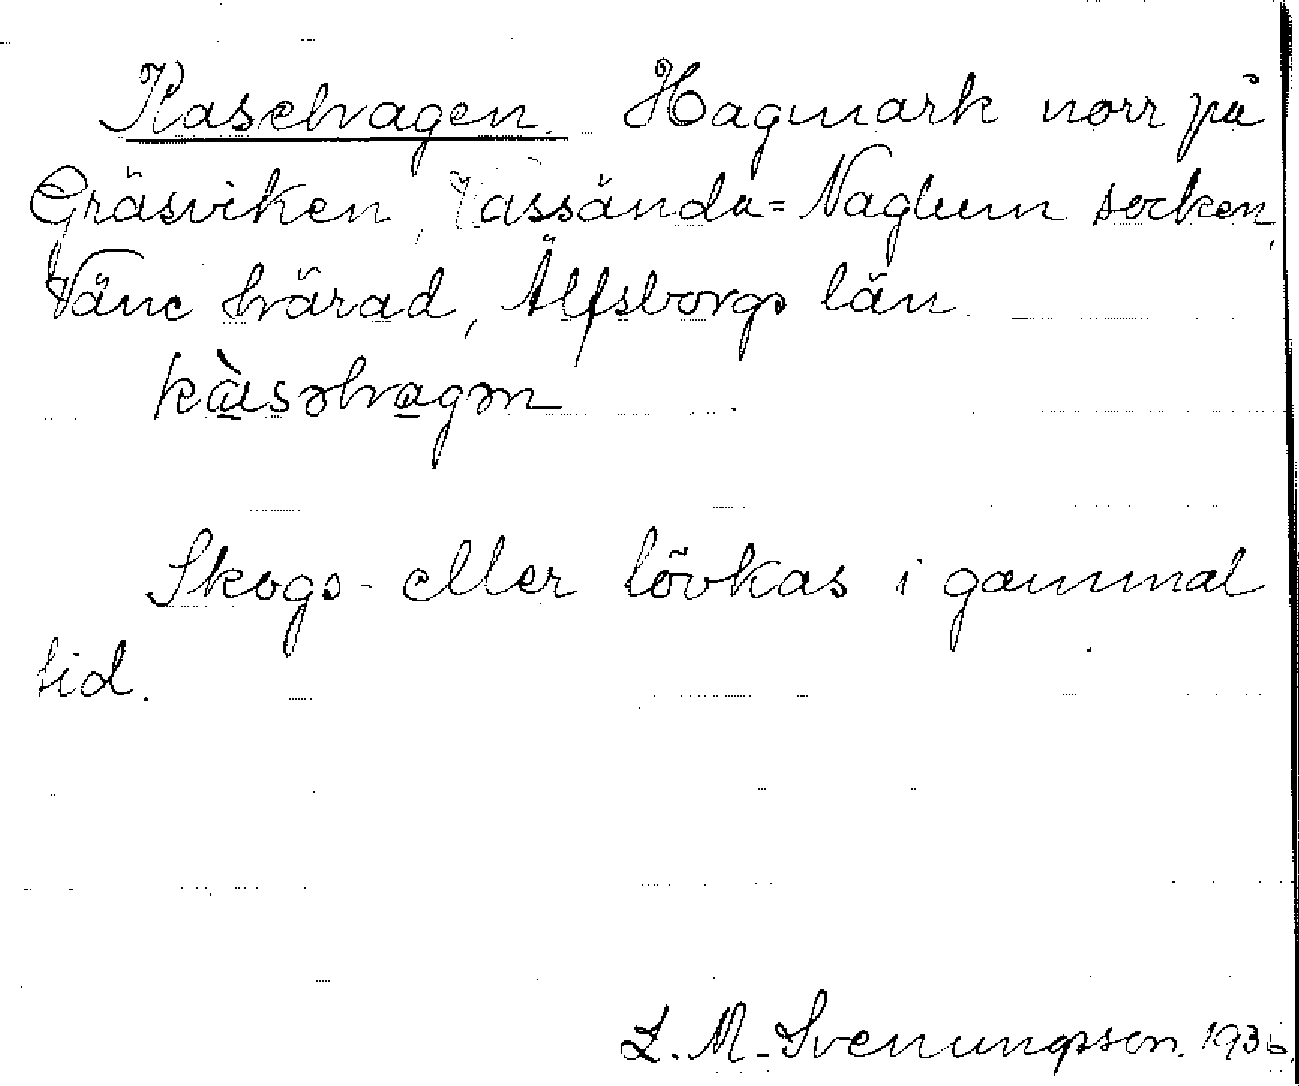 Kasehagen. Hagmark norr på
Gräsviken, Vassända-Naglum socken,
Väne härad, Älfsborgs län.
kàsəhagən
Skogs- eller lövkas i gammal
tid.
L. M. Svenungsson. 1936.